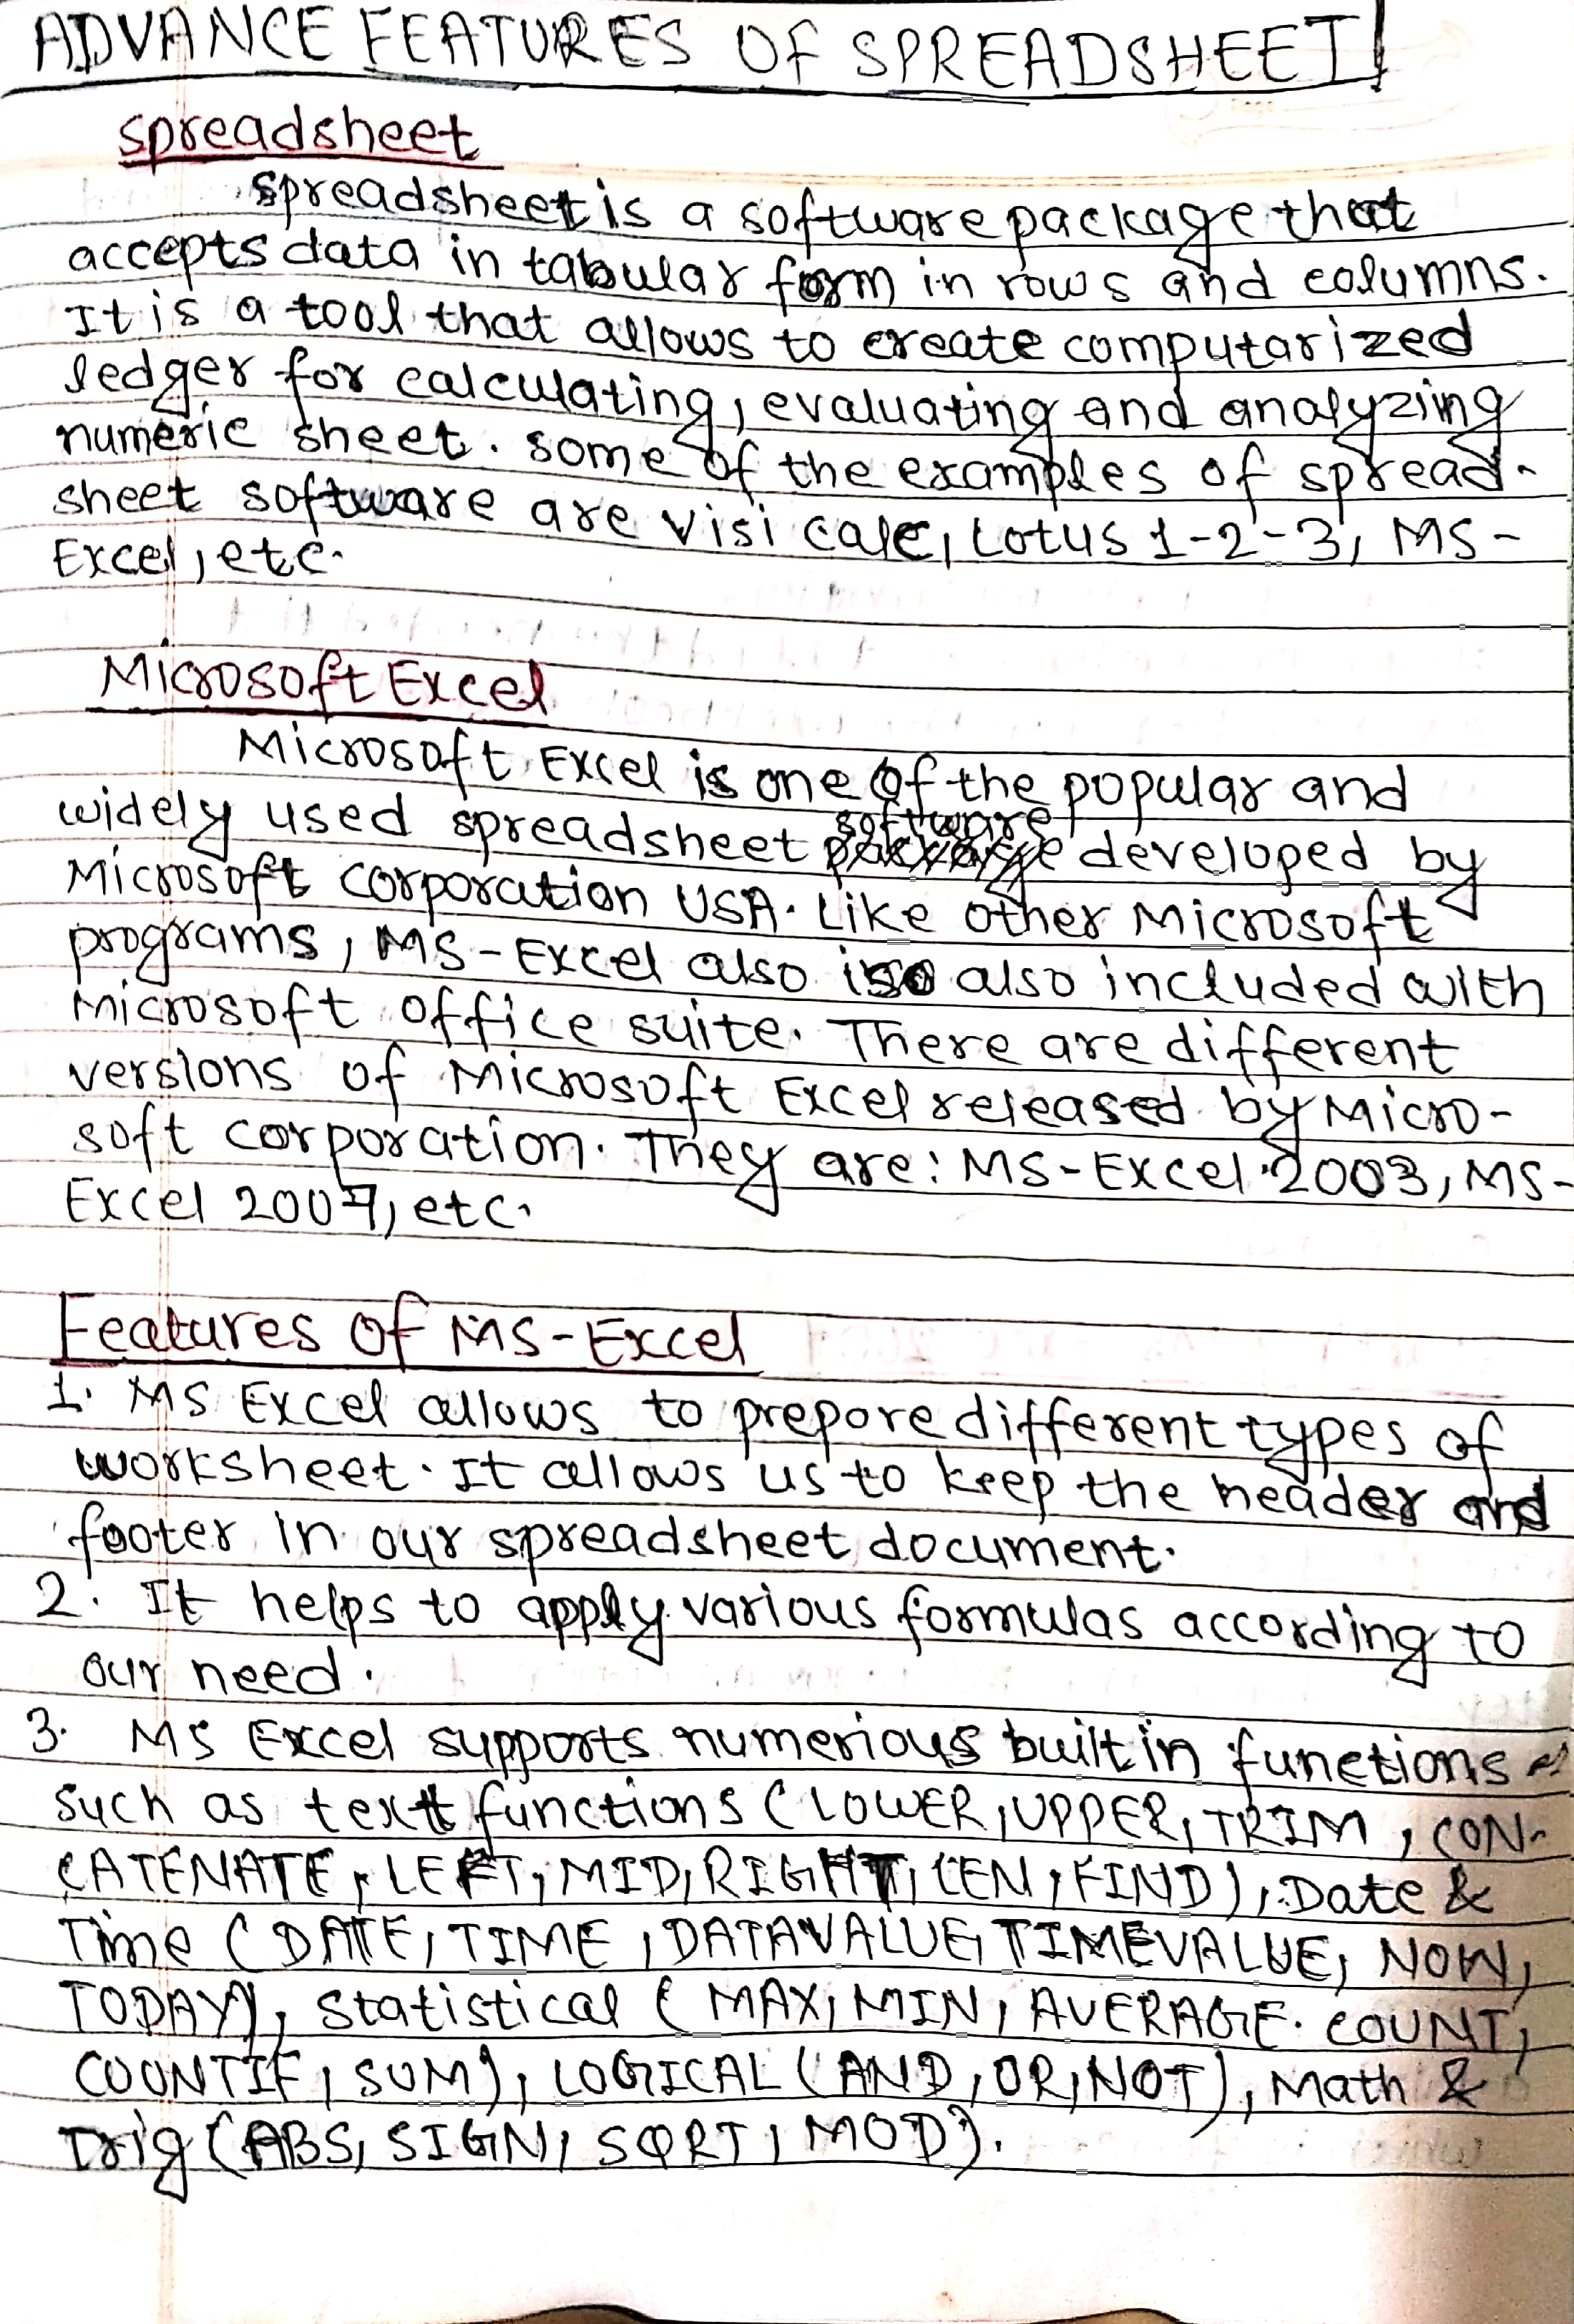 ADVANCE FEATURES OF SPREADSHEET!
spreadsheet
spreadsheet is a software package that
accepts data in tabular form in rows and columns.
It is a tool that allows to create computarized
ledger for calculating, evaluating and analyzing
numeric sheet. some of the examples of spread-
sheet software are visi calc, Lotus 1-2-3, MS-
Excel, etc.
Microsoft Excel
Microsoft Excel is one of the popular and
widely used spreadsheet software developed by
Microsoft corporation USA. Like other Microsoft
programs, MS-Excel also is also included with
Microsoft office suite. There are different
versions of Microsoft Excel released by Micro-
soft corporation. They are: MS-Excel 2003, MS-
Excel 2007, etc.
Features Of MS-Excel
1. MS Excel allows to prepore different types of
worksheet. It allows us to keep the header and
footer in our spreadsheet document.
2. It helps to apply various formulas according to
our need.
3. MS Excel supports numerious built in functions
such as text functions (LOWER, UPPER, TRIM, CON-
CATENATE, LEFT, MID, RIGHT, LEN, FIND), Date &
Time (DATE, TIME, DATAVALUE, TIMEVALUE, NOW,
TODAY), Statistical (MAX, MIN, AVERAGE. COUNT,
COUNTIF, SUM), LOGICAL (AND, OR, NOT), Math &
Trig (ABS, SIGN, SQRT, MOD).